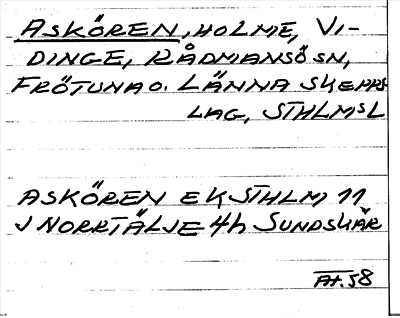 ASKÖREN, HOLME, VI-
DINGE, RÅDMANSÖ SN,
FRÖTUNA O. LÄNNA SKEPPS-
LAG, STHLMS L
ASKÖREN EK STHLM 11
V NORRTÄLJE 4h SUNDSKÄR
AH.58